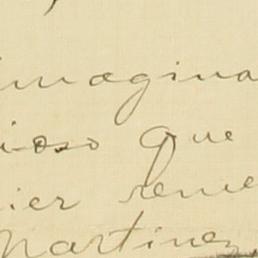 imagina
ioso que
ier reme
Martinez